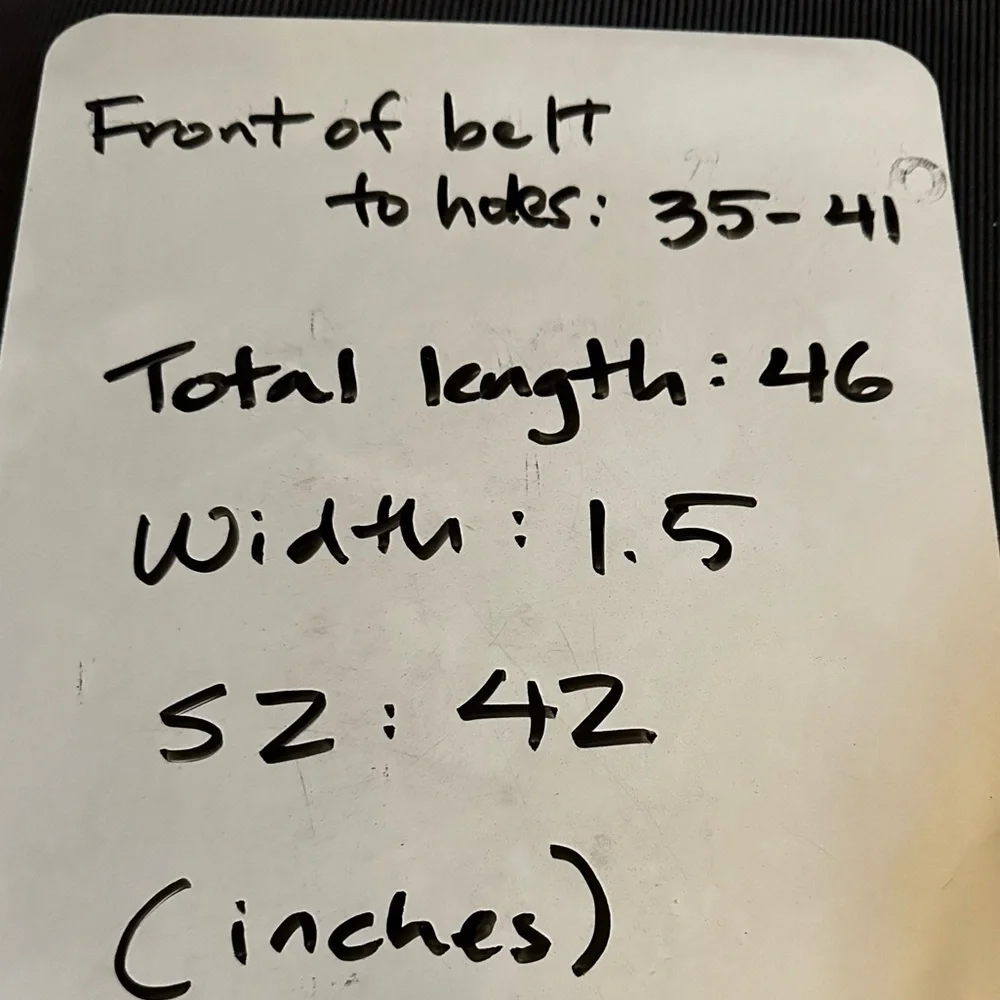 Front of belt
to holes: 35-41
Total length: 46
Width: 1.5
SZ: 42
(inches)